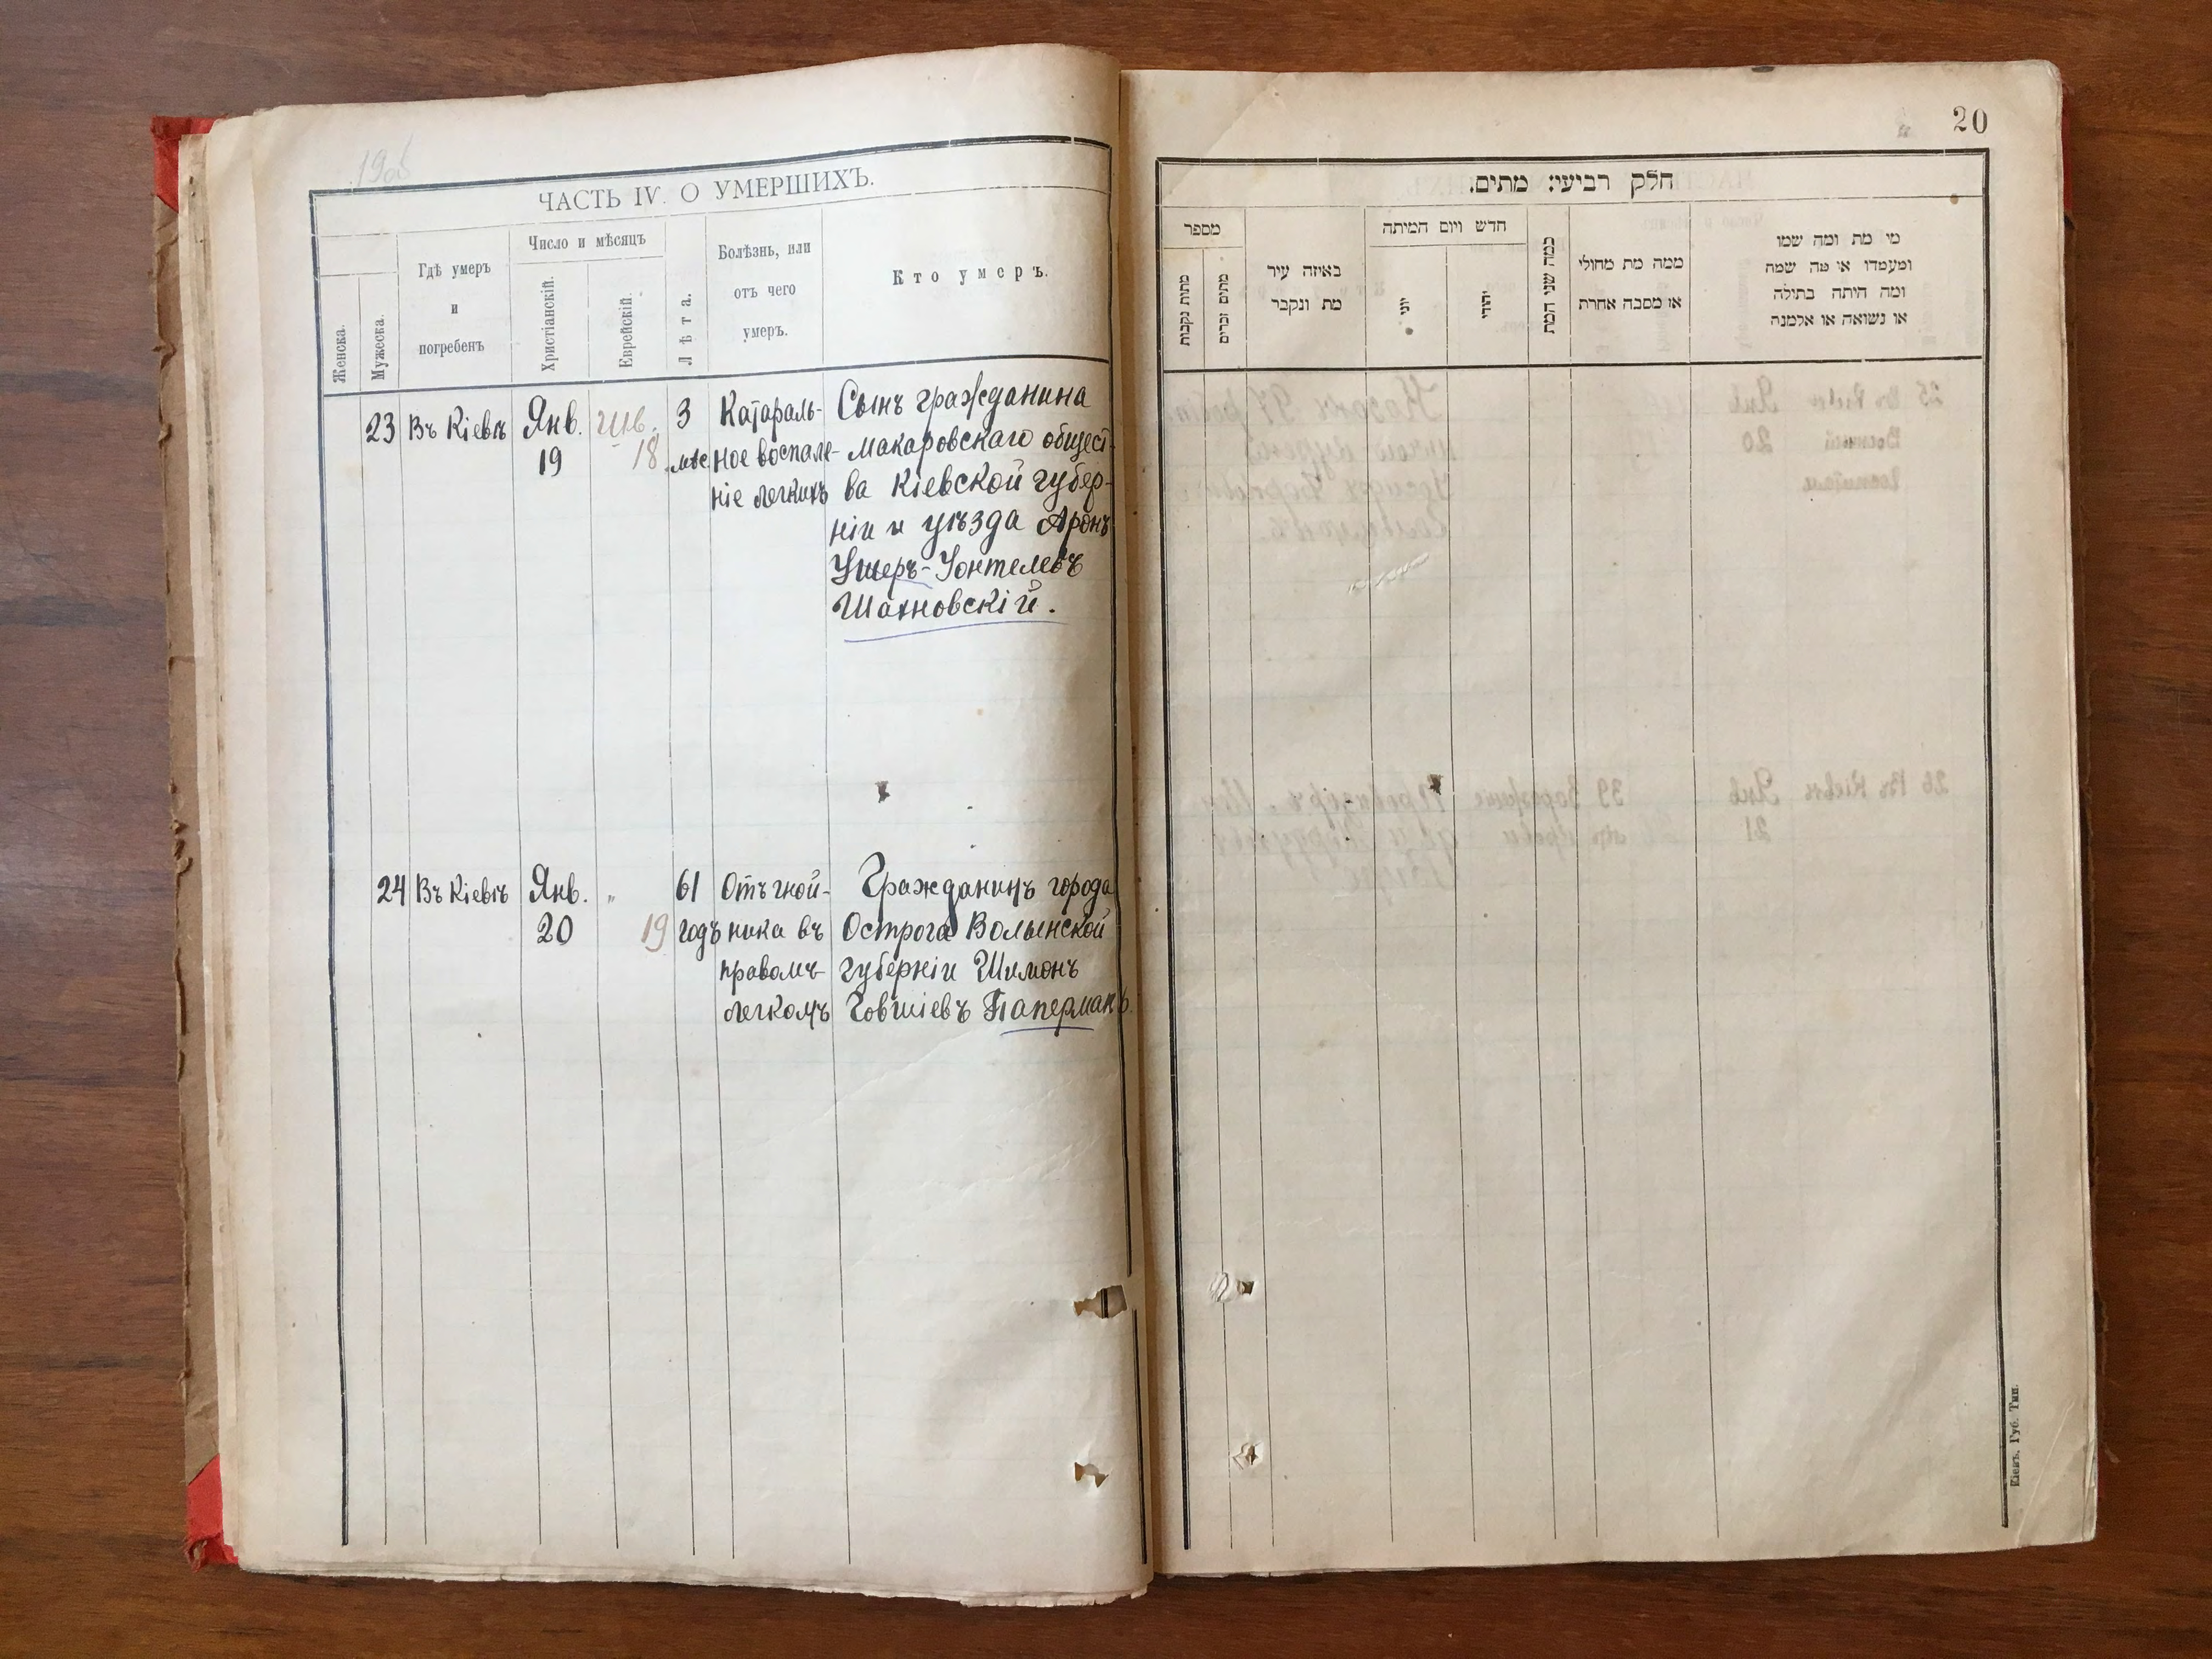 1905
ЧАСТЬ IV. О УМЕРШИХЪ.
Женска.
Мужеска.
Гдѣ умеръ
и
погребенъ
Число и мѣсяцъ
Христіанскій.
Еврейскій.
Лѣта.
Болѣзнь, или
отъ чего
умеръ.
Кто умеръ.
23 Въ Кіевѣ Янв. 19
18
3 мѣс.
Катараль-
ное воспале-
ніе легкихъ
Сынъ гражданина
Макаровскаго общест-
ва Кіевской губер-
ніи и уѣзда Аронъ
Ушеръ-Зонтелевъ
Шахновскій.
24 Въ Кіевѣ Янв. 20
" 19
61 годъ
Отъ гной-
ника въ
правомъ
легкомъ
Гражданинъ города
Острога Волынской
губерніи Шимонъ
Іовшіевъ Паперманъ.
20
חלק רביעי: מתים.
מספר
מתות נקבות
מתים זכרים
באיזה עיר
מת ונקבר
חדש ויום המיתה
יוני
יהודי
כמה שני המת
ממה מת מחולי
או מסבה אחרת
מי מת ומה שמו
ומעמדו או מה שמה
ומה היתה בתולה
או נשואה או אלמנה
Кіевъ. Губ. Тип.